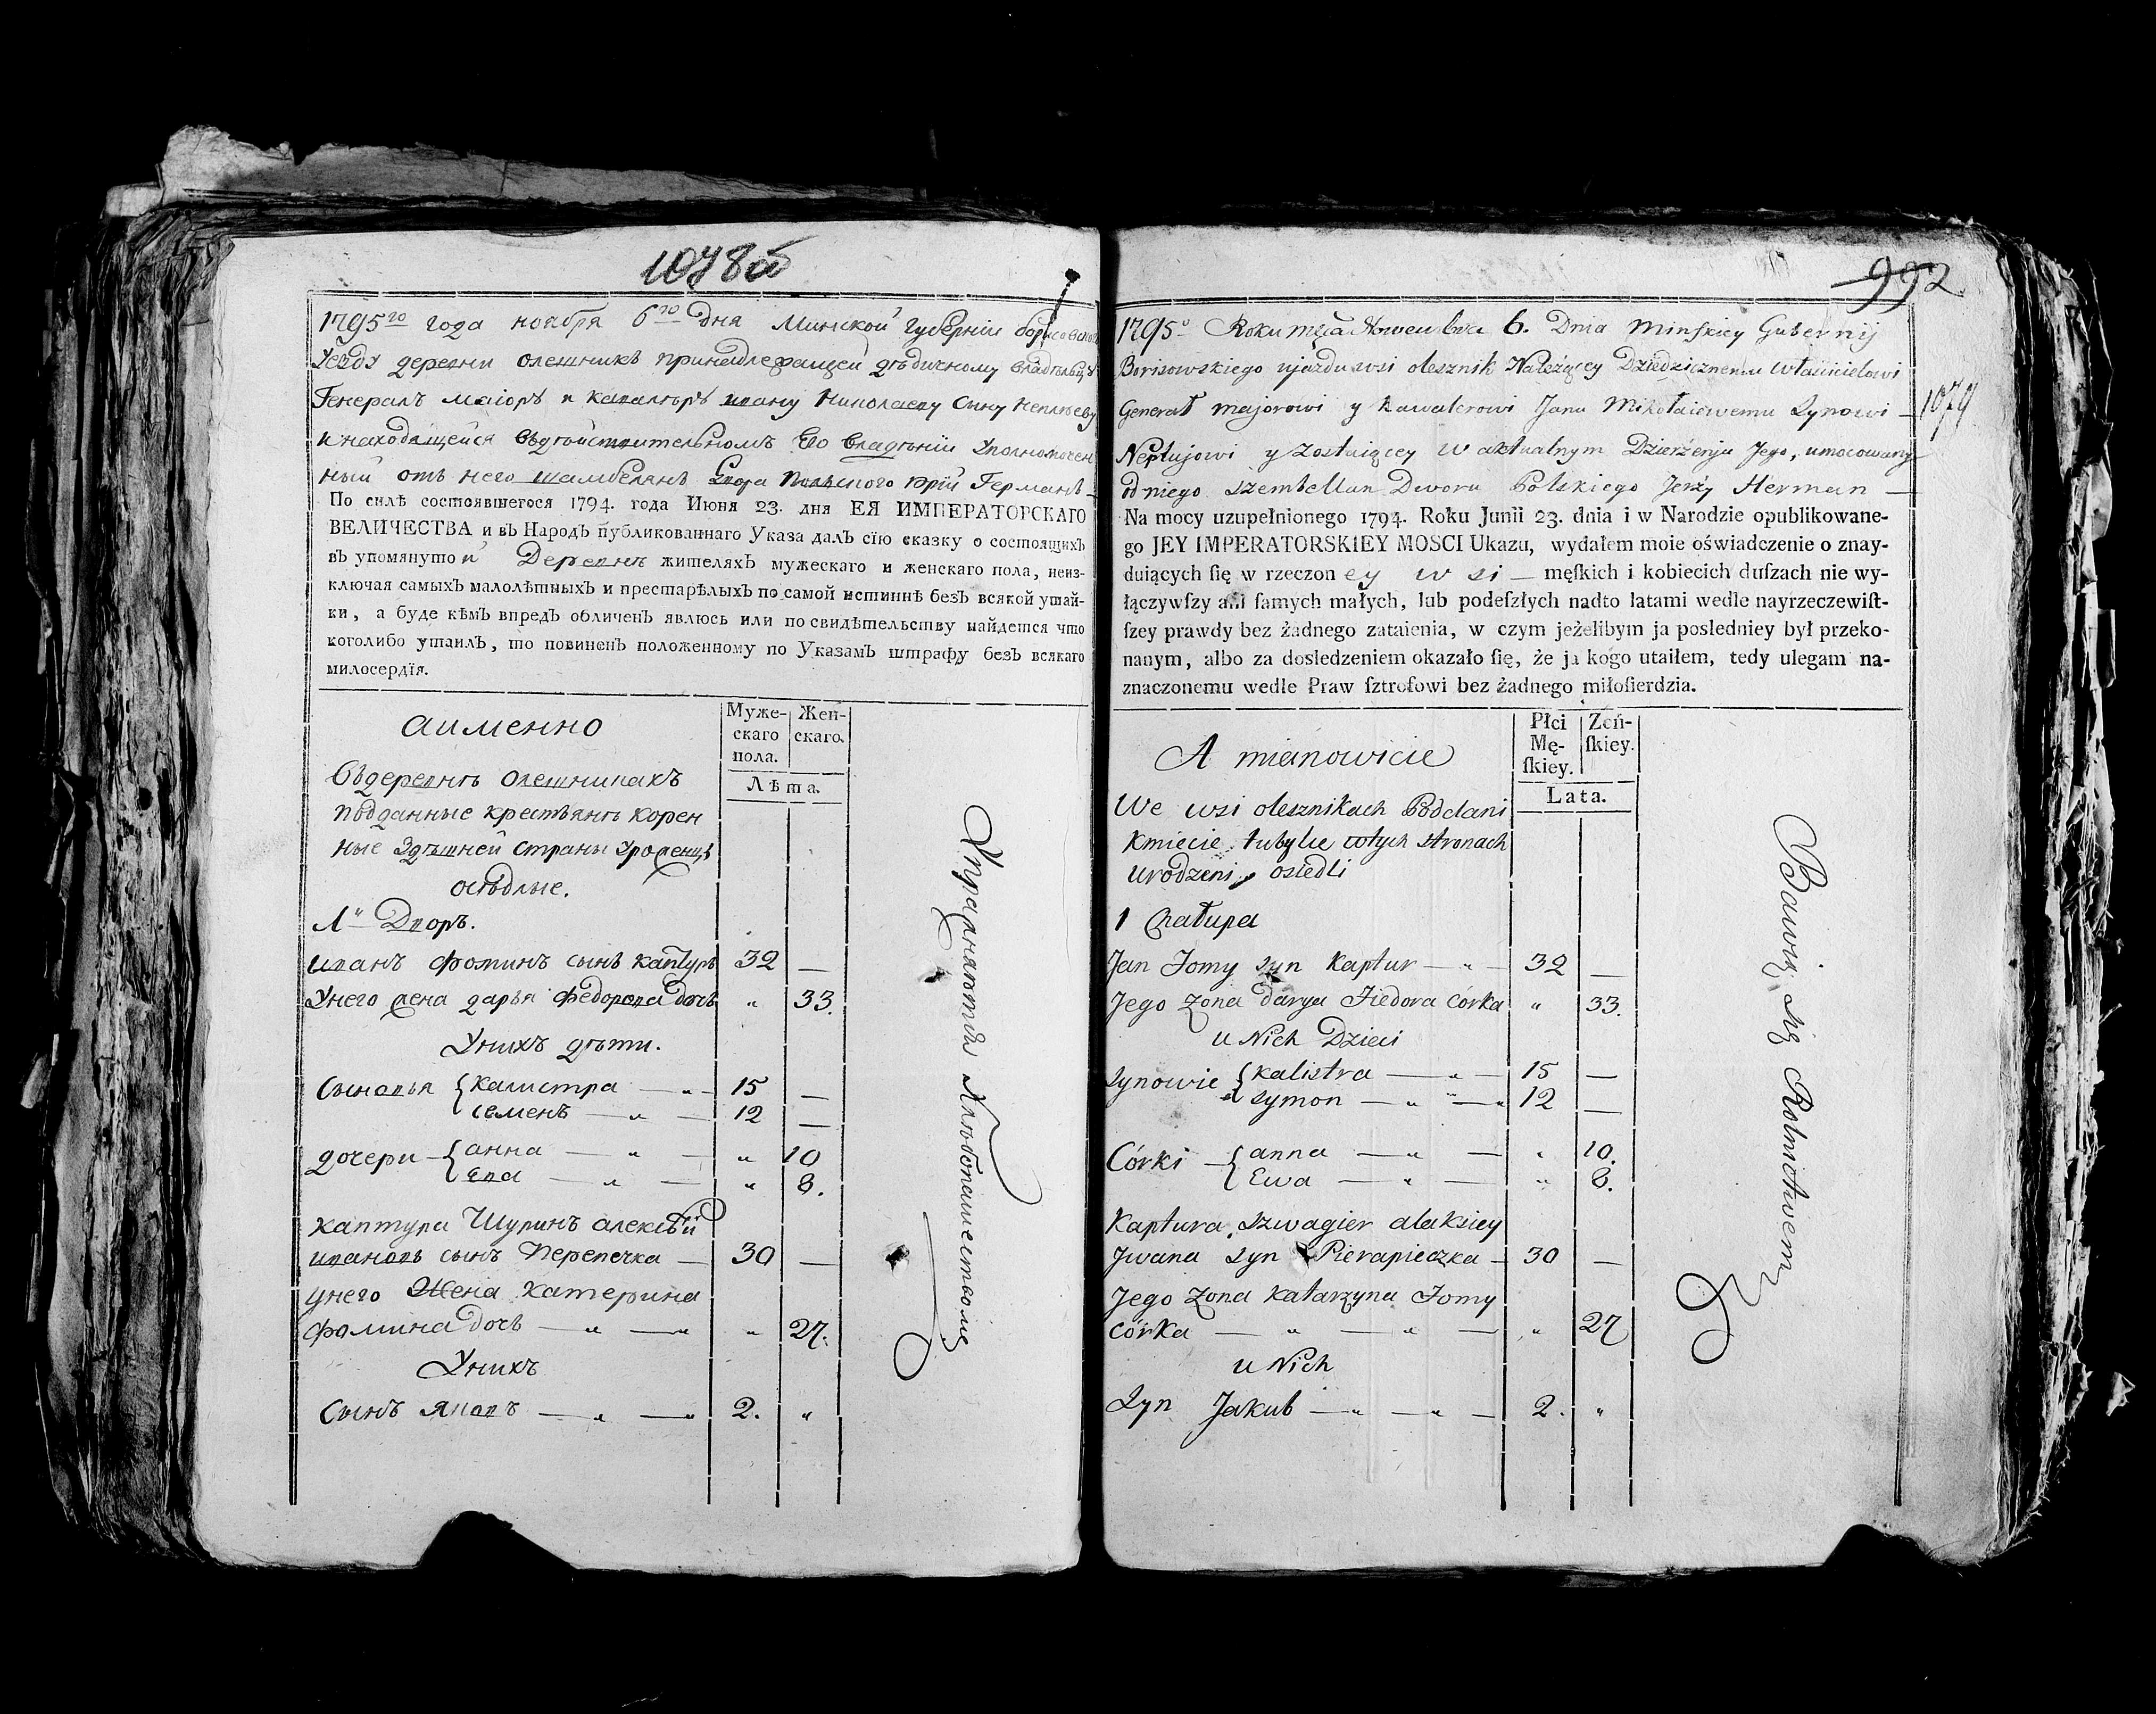 1078об
1795го года ноября 6го дня Минской губернии борисовскаго
уезду деревни олешникъ принадлежащей дѣдичному владѣльцу
Генералъ маіоръ и кавалѣръ ивану николаеву сыну неплюеву
и находящейся въдѣйствительномъ Его владѣніи уполномочен
ный отъ него шамбелянъ Двора польского юрій Германъ —
По силѣ состоявшегося 1794. года Июня 23. дня ЕЯ ИМПЕРАТОРСКАГО
ВЕЛИЧЕСТВА и въ Народъ публикованнаго Указа далъ сїю сказку о состоящихъ
въ упомянутой Деревнѣ жителяхъ мужескаго и женскаго пола, неиз-
ключая самыхъ малолѣтныхъ и престарѣлыхъ по самой истиннѣ безъ всякой утай-
ки, а буде кѣмъ впредъ обличенъ явлюсь или по свидѣтельству найдется что
коголибо утаилъ, то повиненъ положенному по Указамъ штрафу безъ всякаго
милосердїя.
аименно
Муже-
скаго
пола.
Жен-
скаго.
Лѣта.
Въдеревнѣ олешникахъ
подданные крестьянѣ корен
ные здѣшней страны уроженцы
осѣдлые.
1й Дворъ.
иванъ фоминъ сынъ каптуръ 32 —
Унего жена дарья федорова дочь " 33.
Унихъ дѣти.
Сыновья { калистра — " — 15 —
семенъ — " — 12 —
дочери — { анна — " — " 10
Ева — " — " 8.
каптура Шуринъ алексѣй
ивановъ сынъ Перепечка — 30 —
унего Жена катерина
фомина дочь — " — " " 27.
Унихъ
Сынъ яковъ — " — " 2. "
Упражняются Хлѣбопашествомъ
992
1079
1795o Roku mca Nowembra 6. Dnia Minskiey Gubernij
Borisowskiego ujazdu wsi olesznik Należącey Dziedzicznemu właścicielowi
Generał majorowi y kawalerowi Janu Mikołaiowemu Synowi —
Neplujowi y zostaiącey w aktualnym Dzierżenju Jego, umocowany
od niego szembellan Dworu Polskiego Jerzy Herman —
Na mocy uzupełnionego 1794. Roku Junii 23. dnia i w Narodzie opublikowane-
go JEY IMPERATORSKIEY MOSCI Ukazu, wydałem moie oświadczenie o znay-
duiących ſię w rzeczoney wsi — męſkich i kobiecich duſzach nie wy-
łączywſzy ani ſamych małych, lub podeſzłych nadto latami wedle nayrzeczewiſt-
ſzey prawdy bez żadnego zataienia, w czym jeżelibym ja posledniey był przeko-
nanym, albo za dosledzeniem okazało ſię, że ja kogo utaiłem, tedy ulegam na-
znaczonemu wedle Praw ſztrofowi bez żadnego miłoſierdzia.
A mianowicie
Płci
Mę-
ſkiey.
Zeń-
ſkiey.
Lata.
We wsi olesznikach Poddani
kmiecie tubylce wtych stronach
urodzeni y osiedli
1 chałupa
Jan Tomy syn kaptur — " — 32 —
Jego żona darya Fiedora córka " 33.
u Nich Dzieci
synowie { kalistra — " — 15 —
symon — " — " 12 —
Córki — { anna — " — " 10.
Ewa — " — " 8.
Kaptura szwagier alaksiey
Jwana syn Pierapieczka — 30 —
Jego żona katarzyna Tomy
córka — " — " — " 27
u Nich
Syn Jakub — " — " — 2. "
Bawią się Rolnictwem